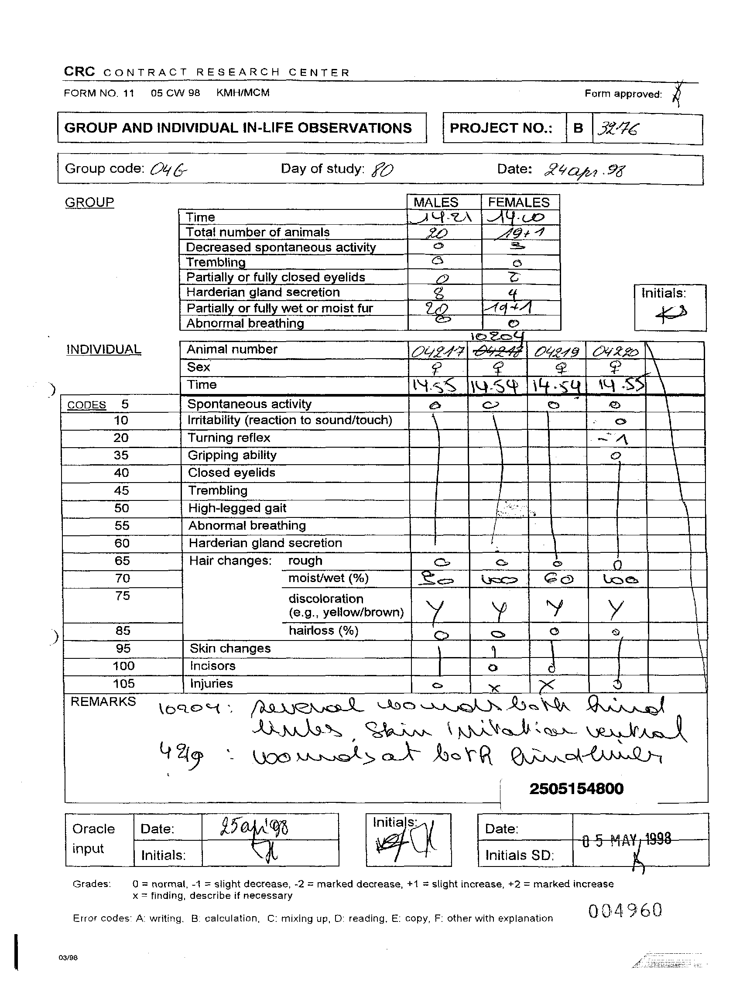 CRC CONTRACT RESEARCH CENTER
FORM NO. 11 05 CW 98 KMH/MCM Form approved:
GROUP AND INDIVIDUAL IN-LIFE OBSERVATIONS PROJECT NO.: B 3276
Group code: 04G Day of study: 80 Date: 24 apr. 98
GROUP MALES FEMALES
Time 14.21 14.00
Total number of animals 20 19+1
Decreased spontaneous activity 0
Trembling 0 0
Partially or fully closed eyelids 0
Harderian gland secretion 8 4
Initials:
Partially or fully wet or moist fur 20 19+1
Abnormal breathing 0
10204
INDIVIDUAL Animal number 04217 04218 04219 04220
Sex ♀ ♀ ♀ ♀
Time 14.55 14.54 14.54 14.55
CODES 5 Spontaneous activity 0 0 0 0
10 Irritability (reaction to sound/touch) 0
20 Turning reflex -1
35 Gripping ability 0
40 Closed eyelids
45 Trembling
50 High-legged gait
55 Abnormal breathing
60 Harderian gland secretion
65 Hair changes: rough 0 0 0 0
70 moist/wet (%) 80 100 60 100
75 discoloration
(e.g., yellow/brown) Y Y Y Y
85 hairloss (%) 0 0 0 0
95 Skin changes 1
100 Incisors 0
105 Injuries 0 x x
REMARKS 10204: several wounds both hind
limbs, skin irritation ventral
4219 : wounds at both hindlimbs
2505154800
Oracle input Date: 25 apr 98 Initials: Date: 05 MAY 1998
Initials: Initials SD:
Grades: 0 = normal, -1 = slight decrease, -2 = marked decrease, +1 = slight increase, +2 = marked increase
x = finding, describe if necessary
Error codes: A: writing, B: calculation, C: mixing up, D: reading, E: copy, F: other with explanation
004960
03/98